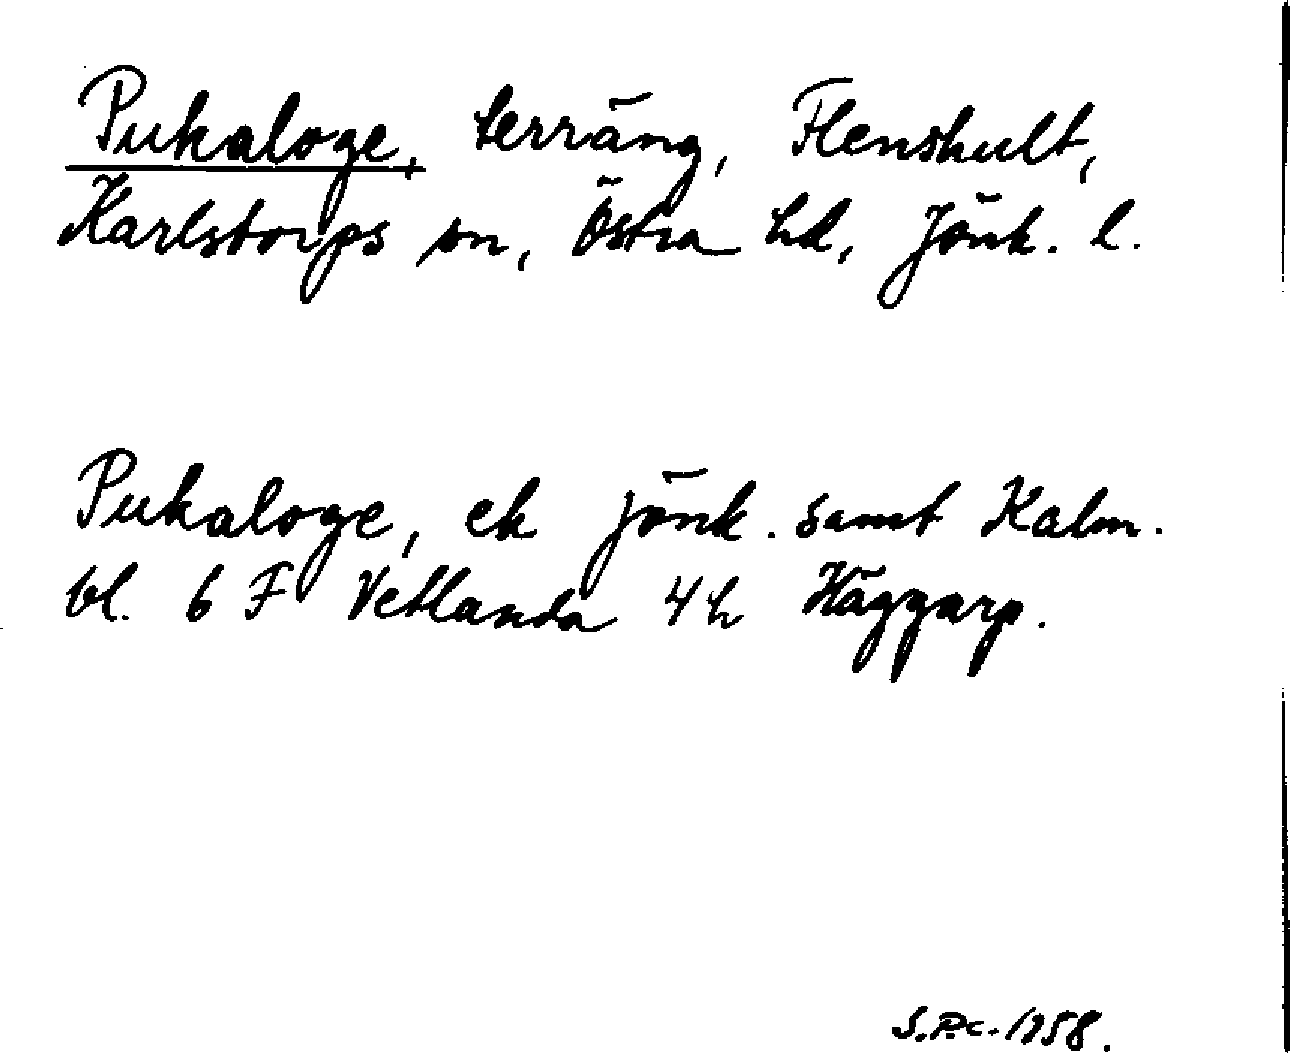 Pukaloge, terräng, Flenshult,
Karlstorps sn, Östra hd, Jönk. l.
Pukaloge, ek Jönk. samt Kalm.
bl. 6 F Vetlanda 4 h Häggarp.
S.P.C. 1958.